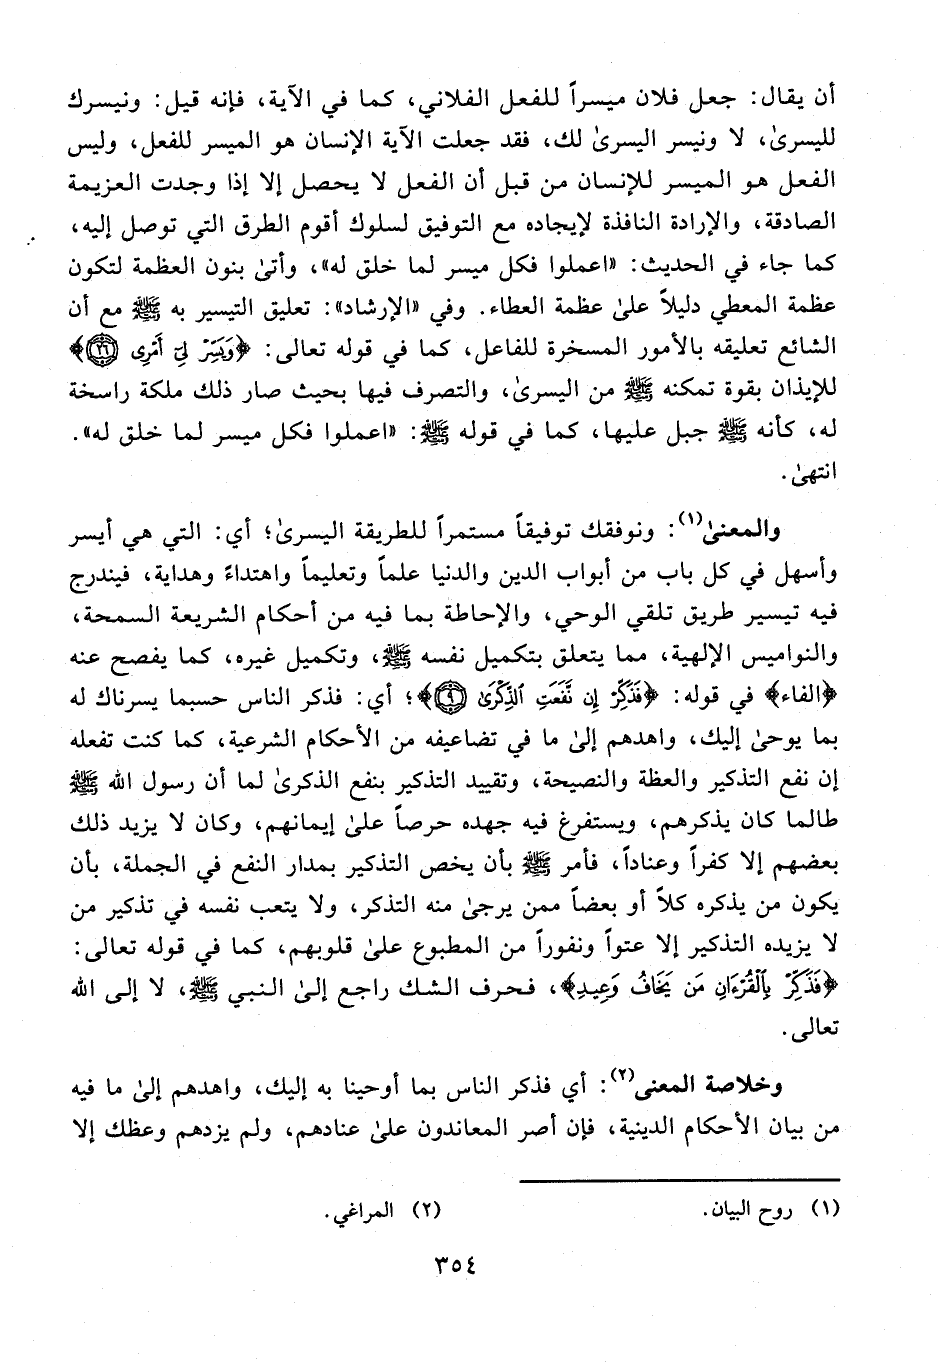 أن يقال: جعل فلان ميسراً للفعل الفلاني، كما في الآية، فإنه قيل: ونيسرك
لليسرىٰ، لا ونيسر اليسرىٰ لك، فقد جعلت الآية الإنسان هو الميسر للفعل، وليس
الفعل هو الميسر للإنسان من قبل أن الفعل لا يحصل إلا إذا وجدت العزيمة
الصادقة، والإرادة النافذة لإيجاده مع التوفيق لسلوك أقوم الطرق التي توصل إليه،
كما جاء في الحديث: «اعملوا فكل ميسر لما خلق له»، وأتىٰ بنون العظمة لتكون
عظمة المعطي دليلاً علىٰ عظمة العطاء. وفي «الإرشاد»: تعليق التيسير به ﷺ مع أن
الشائع تعليقه بالأمور المسخرة للفاعل، كما في قوله تعالى: ﴿وَيَسِّرْ لِيٓ أَمْرِى ٢٦﴾
للإيذان بقوة تمكنه ﷺ من اليسرىٰ، والتصرف فيها بحيث صار ذلك ملكة راسخة
له، كأنه ﷺ جبل عليها، كما في قوله ﷺ: «اعملوا فكل ميسر لما خلق له».
انتهىٰ.
والمعنىٰ(١): ونوفقك توفيقاً مستمراً للطريقة اليسرىٰ؛ أي: التي هي أيسر
وأسهل في كل باب من أبواب الدين والدنيا علماً وتعليماً واهتداءً وهداية، فيندرج
فيه تيسير طريق تلقي الوحي، والإحاطة بما فيه من أحكام الشريعة السمحة،
والنواميس الإلهية، مما يتعلق بتكميل نفسه ﷺ، وتكميل غيره، كما يفصح عنه
﴿الفاء﴾ في قوله: ﴿فَذَكِّرْ إِن نَّفَعَتِ ٱلذِّكْرَىٰ ٩﴾؛ أي: فذكر الناس حسبما يسرناك له
بما يوحىٰ إليك، واهدهم إلىٰ ما في تضاعيفه من الأحكام الشرعية، كما كنت تفعله
إن نفع التذكير والعظة والنصيحة، وتقييد التذكير بنفع الذكرىٰ لما أن رسول الله ﷺ
طالما كان يذكرهم، ويستفرغ فيه جهده حرصاً علىٰ إيمانهم، وكان لا يزيد ذلك
بعضهم إلا كفراً وعناداً، فأمر ﷺ بأن يخص التذكير بمدار النفع في الجملة، بأن
يكون من يذكره كلاً أو بعضاً ممن يرجىٰ منه التذكر، ولا يتعب نفسه في تذكير من
لا يزيده التذكير إلا عتواً ونفوراً من المطبوع علىٰ قلوبهم، كما في قوله تعالى:
﴿فَذَكِّرْ بِٱلْقُرْءَانِ مَن يَخَافُ وَعِيدِ﴾، فحرف الشك راجع إلىٰ النبي ﷺ، لا إلى الله
تعالى.
وخلاصة المعنى(٢): أي فذكر الناس بما أوحينا به إليك، واهدهم إلىٰ ما فيه
من بيان الأحكام الدينية، فإن أصر المعاندون علىٰ عنادهم، ولم يزدهم وعظك إلا
(١) روح البيان. (٢) المراغي.
٣٥٤